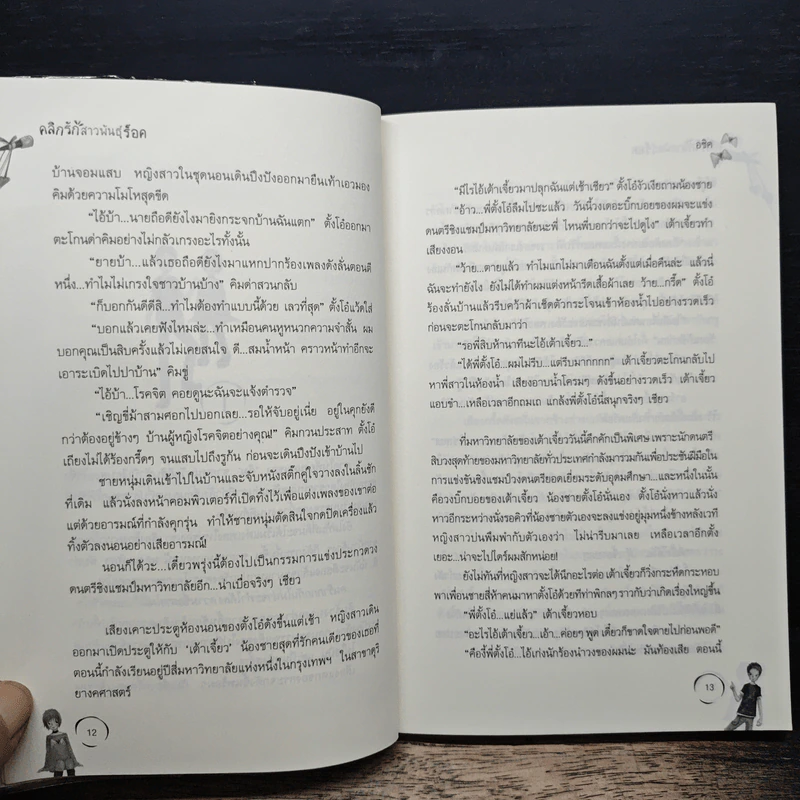 คลิกรักสาวพันธุ์ร็อค
บ้านจอมแสบ หญิงสาวในชุดนอนเดินปึงปังออกมายืนเท้าเอวมอง
คิมด้วยความโมโหสุดขีด
“ไอ้บ้า...นายถือดียังไงมายิงกระจกบ้านฉันแตก” ตั้งโอ๋ออกมา
ตะโกนด่าคิมอย่างไม่กลัวเกรงอะไรทั้งนั้น
“ยายบ้า...แล้วเธอถือดียังไงมาแหกปากร้องเพลงดังลั่นตอนตี
หนึ่ง...ทำไมไม่เกรงใจชาวบ้านบ้าง” คิมด่าสวนกลับ
“ก็บอกกันดีดีสิ...ทำไมต้องทำแบบนี้ด้วย เลวที่สุด” ตั้งโอ๋แว้ดใส่
“บอกแล้วเคยฟังไหมล่ะ...ทำเหมือนคนหูหนวกความจำสั้น ผม
บอกคุณเป็นสิบครั้งแล้วไม่เคยสนใจ ดี...สมน้ำหน้า คราวหน้าทำอีกจะ
เอาระเบิดไปปาบ้าน” คิมขู่
“ไอ้บ้า...โรคจิต คอยดูนะฉันจะแจ้งตำรวจ”
“เชิญขี่ม้าสามศอกไปบอกเลย...รอให้จับอยู่เนี่ย อยู่ในคุกยังดี
กว่าต้องอยู่ข้างๆ บ้านผู้หญิงโรคจิตอย่างคุณ!” คิมกวนประสาท ตั้งโอ๋
เถียงไม่ได้ร้องกรี๊ดๆ จนแสบไปถึงรูก้น ก่อนจะเดินปึงปังเข้าบ้านไป
ชายหนุ่มเดินเข้าไปในบ้านและจับหนังสติ๊กคู่ใจวางลงในลิ้นชัก
ที่เดิม แล้วนั่งลงหน้าคอมพิวเตอร์ที่เปิดทิ้งไว้เพื่อแต่งเพลงของเขาต่อ
แต่ด้วยอารมณ์ที่กำลังคุกรุ่น ทำให้ชายหนุ่มตัดสินใจกดปิดเครื่องแล้ว
ทิ้งตัวลงนอนอย่างเสียอารมณ์!
นอนก็ได้วะ...เดี๋ยวพรุ่งนี้ต้องไปเป็นกรรมการแข่งประกวดวง
ดนตรีชิงแชมป์มหาวิทยาลัยอีก...น่าเบื่อจริงๆ เชียว
เสียงเคาะประตูห้องนอนของตั้งโอ๋ดังขึ้นแต่เช้า หญิงสาวเดิน
ออกมาเปิดประตูให้กับ ‘เต้าเจี้ยว’ น้องชายสุดที่รักคนเดียวของเธอที่
ตอนนี้กำลังเรียนอยู่ปีสี่มหาวิทยาลัยแห่งหนึ่งในกรุงเทพฯ ในสาขาดุริ
ยางคศาสตร์
12
อชิค
“มีไรไอ้เต้าเจี้ยวมาปลุกฉันแต่เช้าเชียว” ตั้งโอ๋งัวเงียถามน้องชาย
“อ้าว...พี่ตั้งโอ๋ลืมไปซะแล้ว วันนี้วงเดอะบิ๊กบอยของผมจะแข่ง
ดนตรีชิงแชมป์มหาวิทยาลัยนะพี่ ไหนพี่บอกว่าจะไปดูไง” เต้าเจี้ยวทำ
เสียงงอน
“ว้าย...ตายแล้ว ทำไมแกไม่มาเตือนฉันตั้งแต่เมื่อคืนล่ะ แล้วนี่
ฉันจะทำยังไง ยังไม่ได้ทำผมแต่งหน้ารีดเสื้อผ้าเลย ว้าย...กรี๊ด” ตั้งโอ๋
ร้องลั่นบ้านแล้วรีบคว้าผ้าเช็ดตัวกระโจนเข้าห้องน้ำไปอย่างรวดเร็ว
ก่อนจะตะโกนกลับมาว่า
“รอพี่สิบห้านาทีนะไอ้เต้าเจี้ยว...”
“ได้พี่ตั้งโอ๋...ผมไม่รีบ...แต่รีบมากกกก” เต้าเจี้ยวตะโกนกลับไป
หาพี่สาวในห้องน้ำ เสียงอาบน้ำโครมๆ ดังขึ้นอย่างรวดเร็ว เต้าเจี้ยว
แอบขำ...เหลือเวลาอีกถมเถ แกล้งพี่ตั้งโอ๋นี่สนุกจริงๆ เชียว
ที่มหาวิทยาลัยของเต้าเจี้ยววันนี้คึกคักเป็นพิเศษ เพราะนักดนตรี
สิบวงสุดท้ายของมหาวิทยาลัยทั่วประเทศกำลังมารวมกันเพื่อประชันฝีมือใน
การแข่งขันชิงแชมป์วงดนตรียอดเยี่ยมระดับอุดมศึกษา...และหนึ่งในนั้น
คือวงบิ๊กบอยของเต้าเจี้ยว น้องชายตั้งโอ๋นั่นเอง ตั้งโอ๋นั่งหาวแล้วนั่ง
หาวอีกระหว่างนั่งรอคิวที่น้องชายตัวเองจะลงแข่งอยู่มุมหนึ่งข้างหลังเวที
หญิงสาวบ่นพึมพำกับตัวเองว่า ไม่น่ารีบมาเลย เหลือเวลาอีกตั้ง
เยอะ...น่าจะไปไดร์ผมสักหน่อย!
ยังไม่ทันที่หญิงสาวจะได้นึกอะไรต่อ เต้าเจี้ยวก็วิ่งกระหืดกระหอบ
พาเพื่อนชายสี่ห้าคนมาหาตั้งโอ๋ด้วยทีท่าพิกลๆ ราวกับว่าเกิดเรื่องใหญ่ขึ้น
“พี่ตั้งโอ๋...แย่แล้ว” เต้าเจี้ยวหอบ
“อะไรไอ้เต้าเจี้ยว...เอ้า...ค่อยๆ พูด เดี๋ยวก็ขาดใจตายไปก่อนพอดี”
“คืองี้พี่ตั้งโอ๋...ไอ้เก่งนักร้องนำวงของผมน่ะ มันท้องเสีย ตอนนี้
13